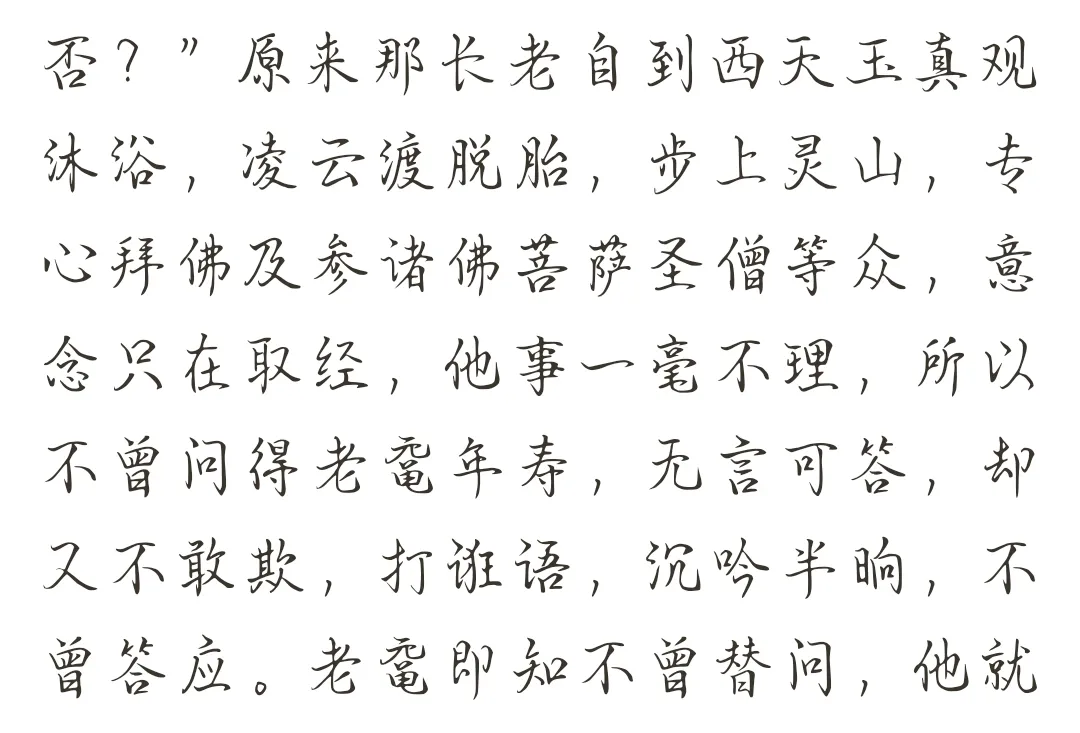 否？”原来那长老自到西天玉真观
沐浴，凌云渡脱胎，步上灵山，专
心拜佛及参诸佛菩萨圣僧等众，意
念只在取经，他事一毫不理，所以
不曾问得老鼋年寿，无言可答，却
又不敢欺，打诳语，沉吟半晌，不
曾答应。老鼋即知不曾替问，他就